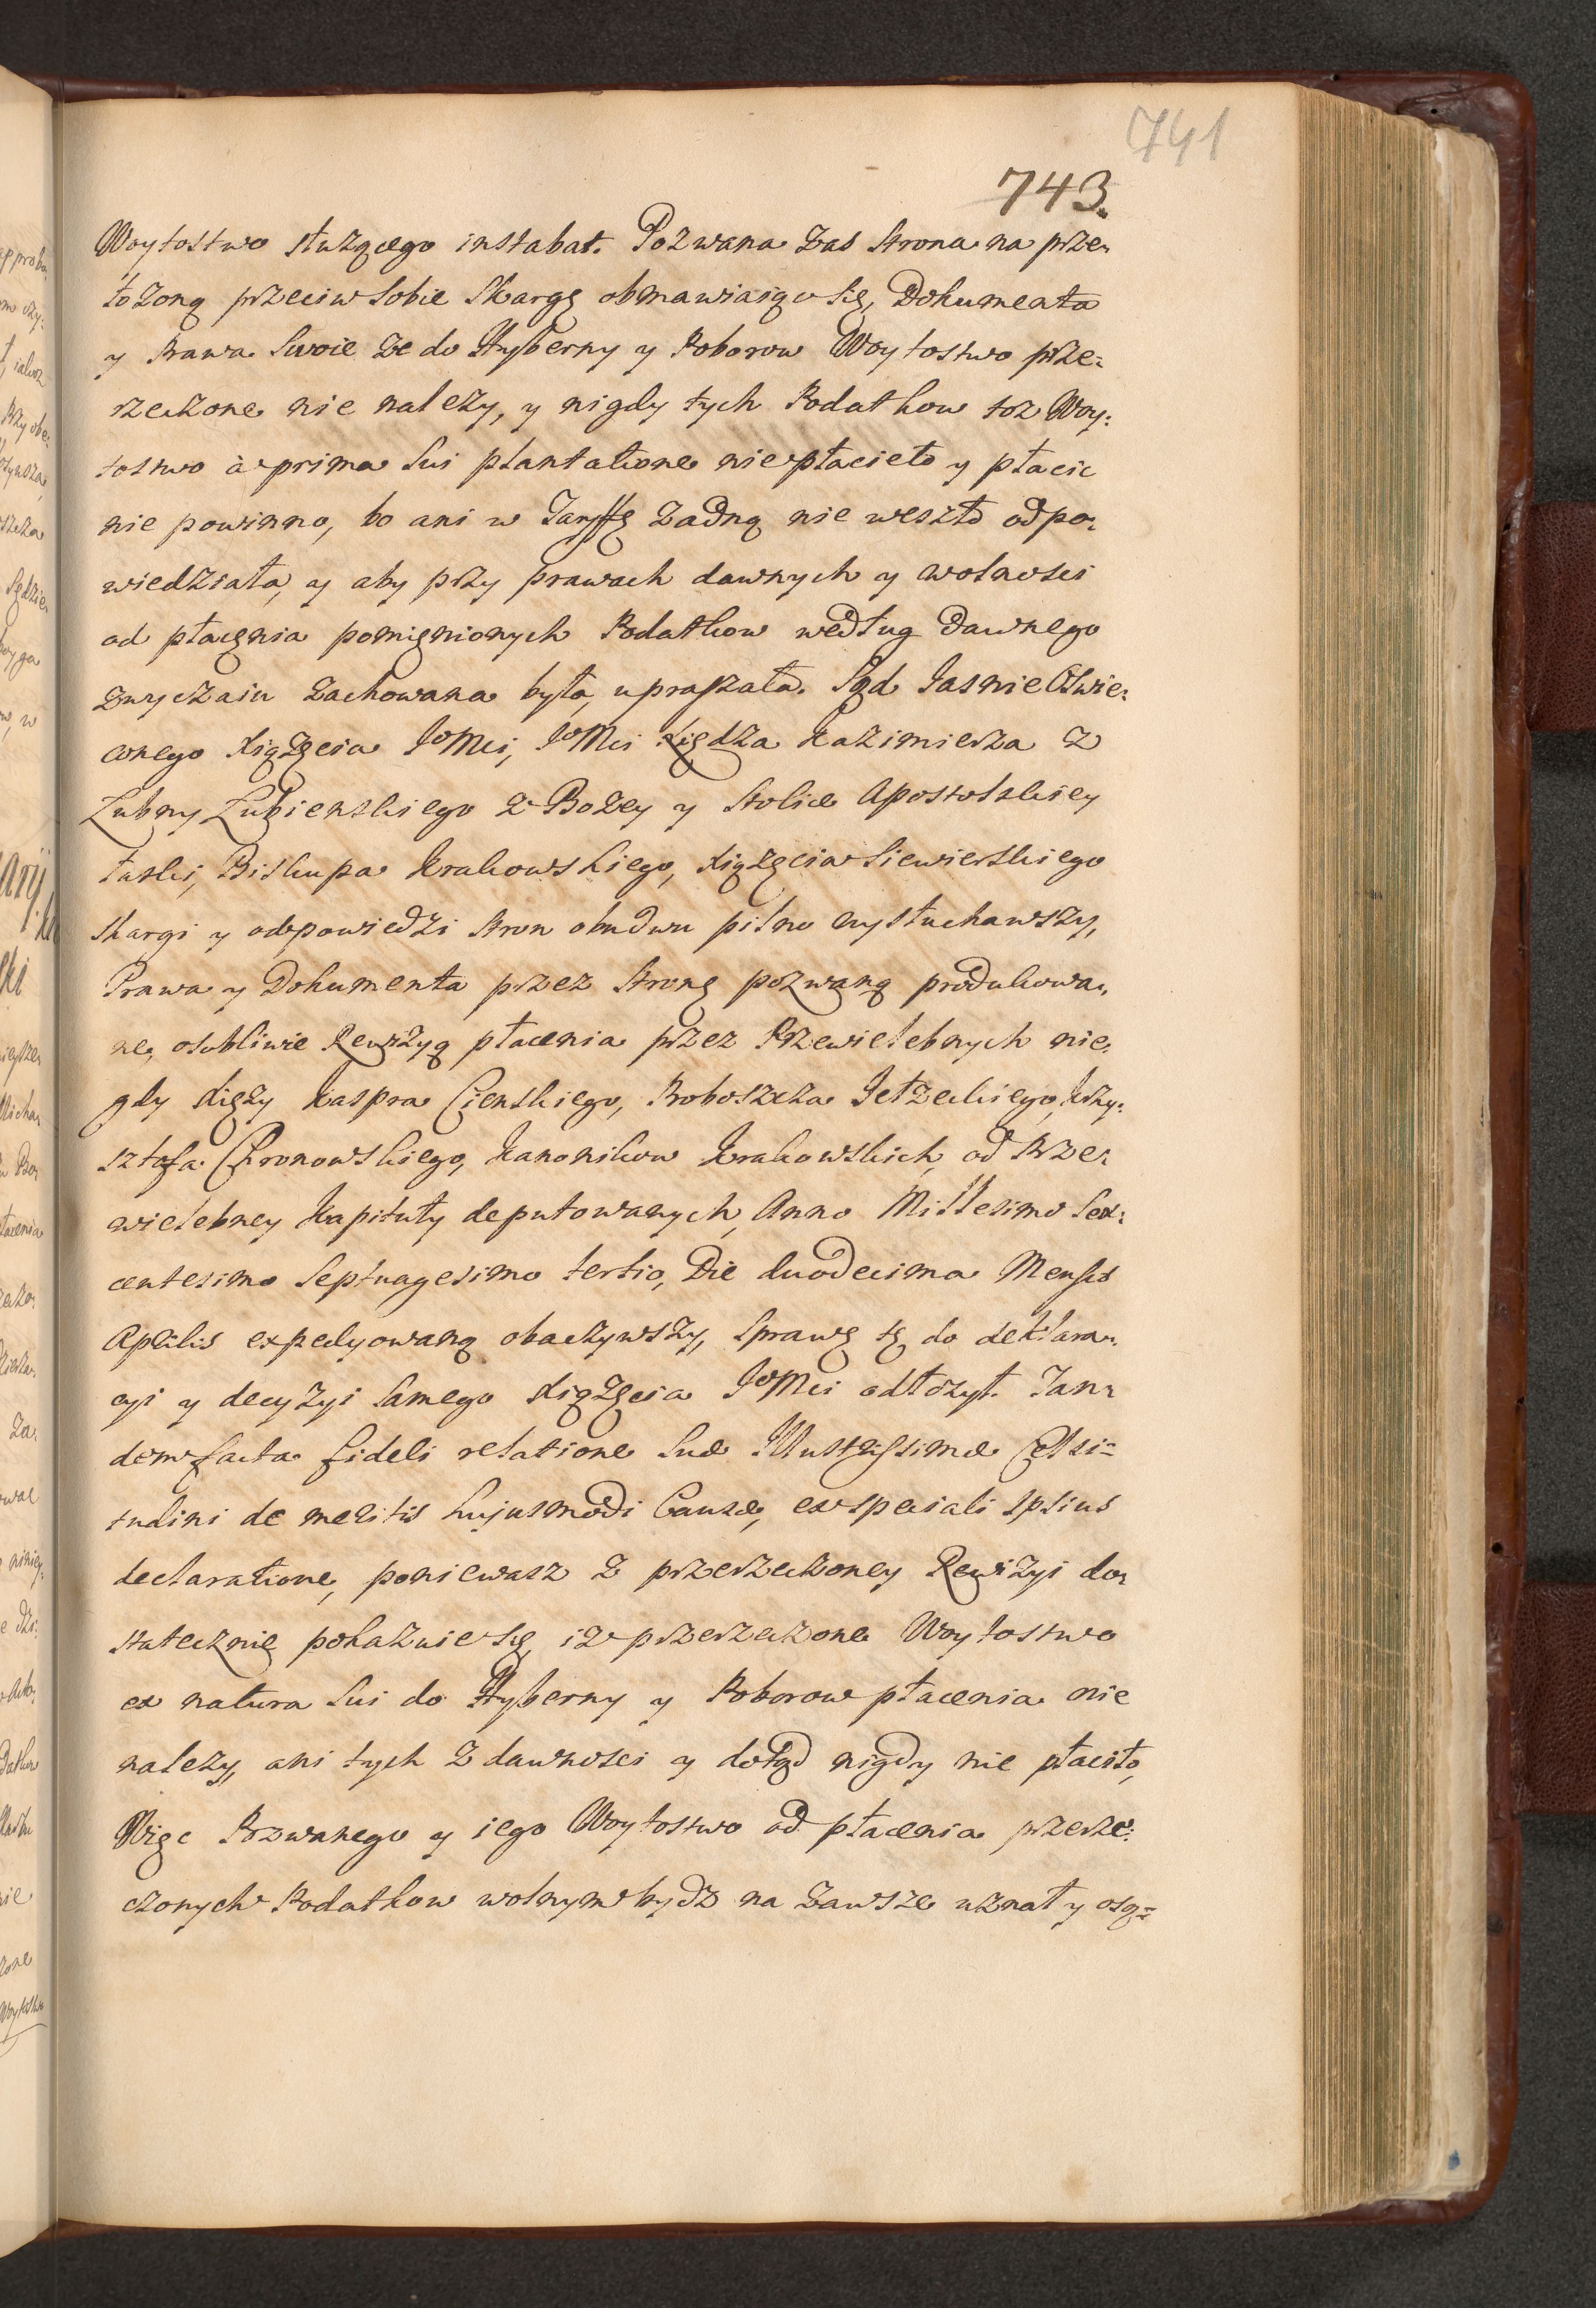 741
743.
Woytostwo służącego instabat. Pozwana zas Strona na prze„
łozoną przeciw Sobie Skargę obmawiaiąc Się, Dokumenta
y Prawa Swoie ze do Hyberny y Poborow Woytostwo prze:
rzeczone nie nalezy, y nigdy tych Podatkow toz Woy:
tostwo à prima Sui plantatione niepłacieło y płacic
nie powinno, bo ani w Taryffę zadną nie weszło odpo„
wiedziała, y aby przy prawach dawnych y wolnosci
od płacęnia pomięnionych Podatkow według dawnego
zwyczaiu zachowana była, upraszała. Sąd Jasnie Oswie:
conego Xiążęcia JoMci, JoMci Xiędza Kazimierza z
Łubny Łubienskiego z Bozey y Stolice Apostolskiey
łaski, Biskupa Krakowskiego, Xiążęcia Siewierskiego
Skargi y odpowiedzi Stron obudwu pilno wysłuchawszy,
Prawa y Dokumenta przez Stronę pozwaną produkowa„
ne, osobliwie Rewizyą płacenia przez Przewielebnych nie„
gdy Xięzy Kaspra Cienskiego, Proboszcza Jelzeckiego, Krzy:
sztofa Chronowskiego, Kanonikow Krakowskich, od Prze„
wielebney Kapituły deputowanych, Anno Millesimo Sex:
centesimo Septuagesimo tertio, Die duodecima Mensis
Aprilis expedyowaną obaczywszy, Sprawę tę do deklara„
cyi y decyzyi Samego Xiążęcia JoMci odłozył. Tan„
dem facta fideli relatione Suæ Illustrissimæ Celsi=
tudini de meritis hujusmodi Causæ, ex speciali Ipsius
declaratione, poniewasz z przerzeczoney Rewizyi do„
statecznie pokazuie Się, iz przerzeczone Woytostwo
ex natura Sui do Hyberny y Poborow płacenia nie
nalezy, ani tych z dawnosci y dotąd nigdy nie płaciło,
Więc Pozwanego y iego Woytostwo od płacenia przerze:
czonych Podatkow wolnym bydz na zawsze uznał y osą=